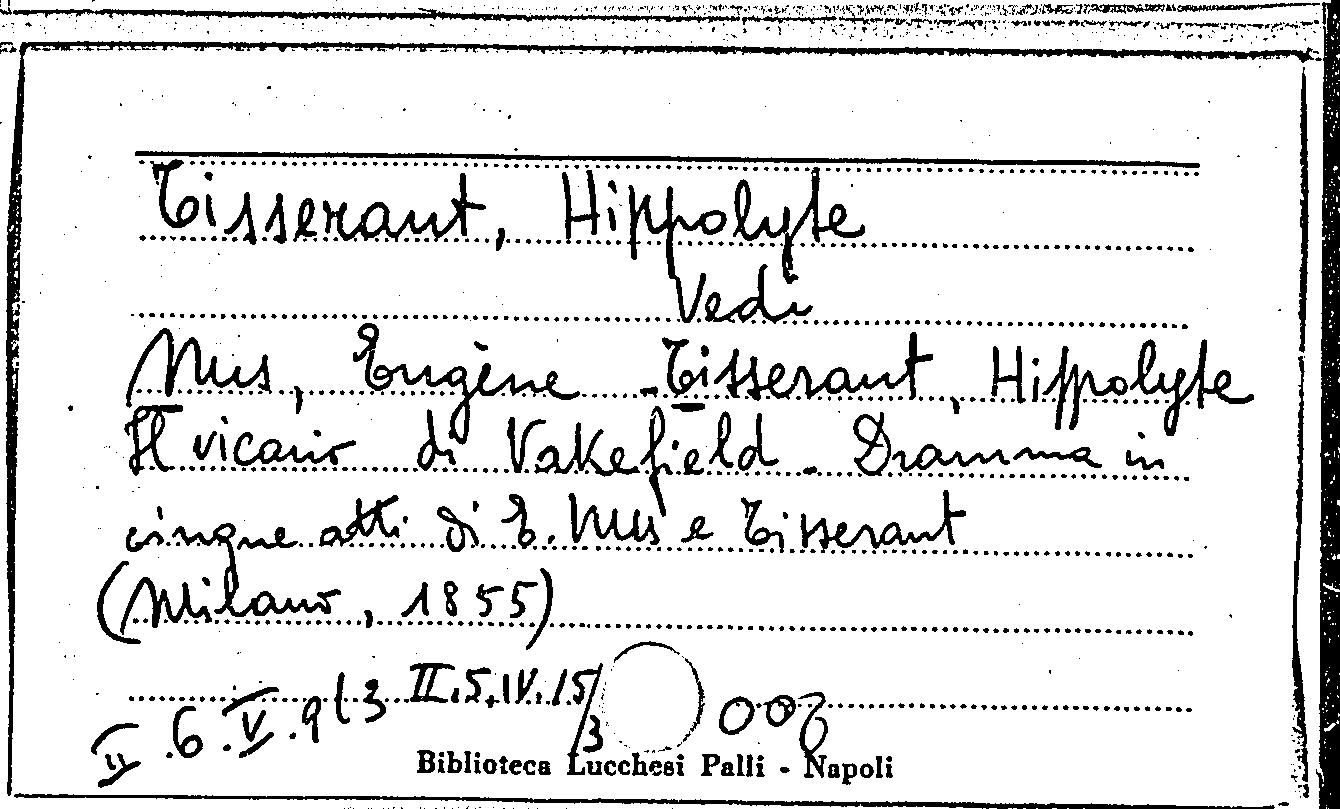 Tisserant, Hippolyte
Vedi
Nus, Eugène - Tisserant, Hippolyte
Il vicario di Vakefield - Dramma in
cinque atti di E. Nus e Tisserant
(Milano, 1855)
II.6.V.9(3 II.5.IV.15/3
Biblioteca Lucchesi Palli - Napoli